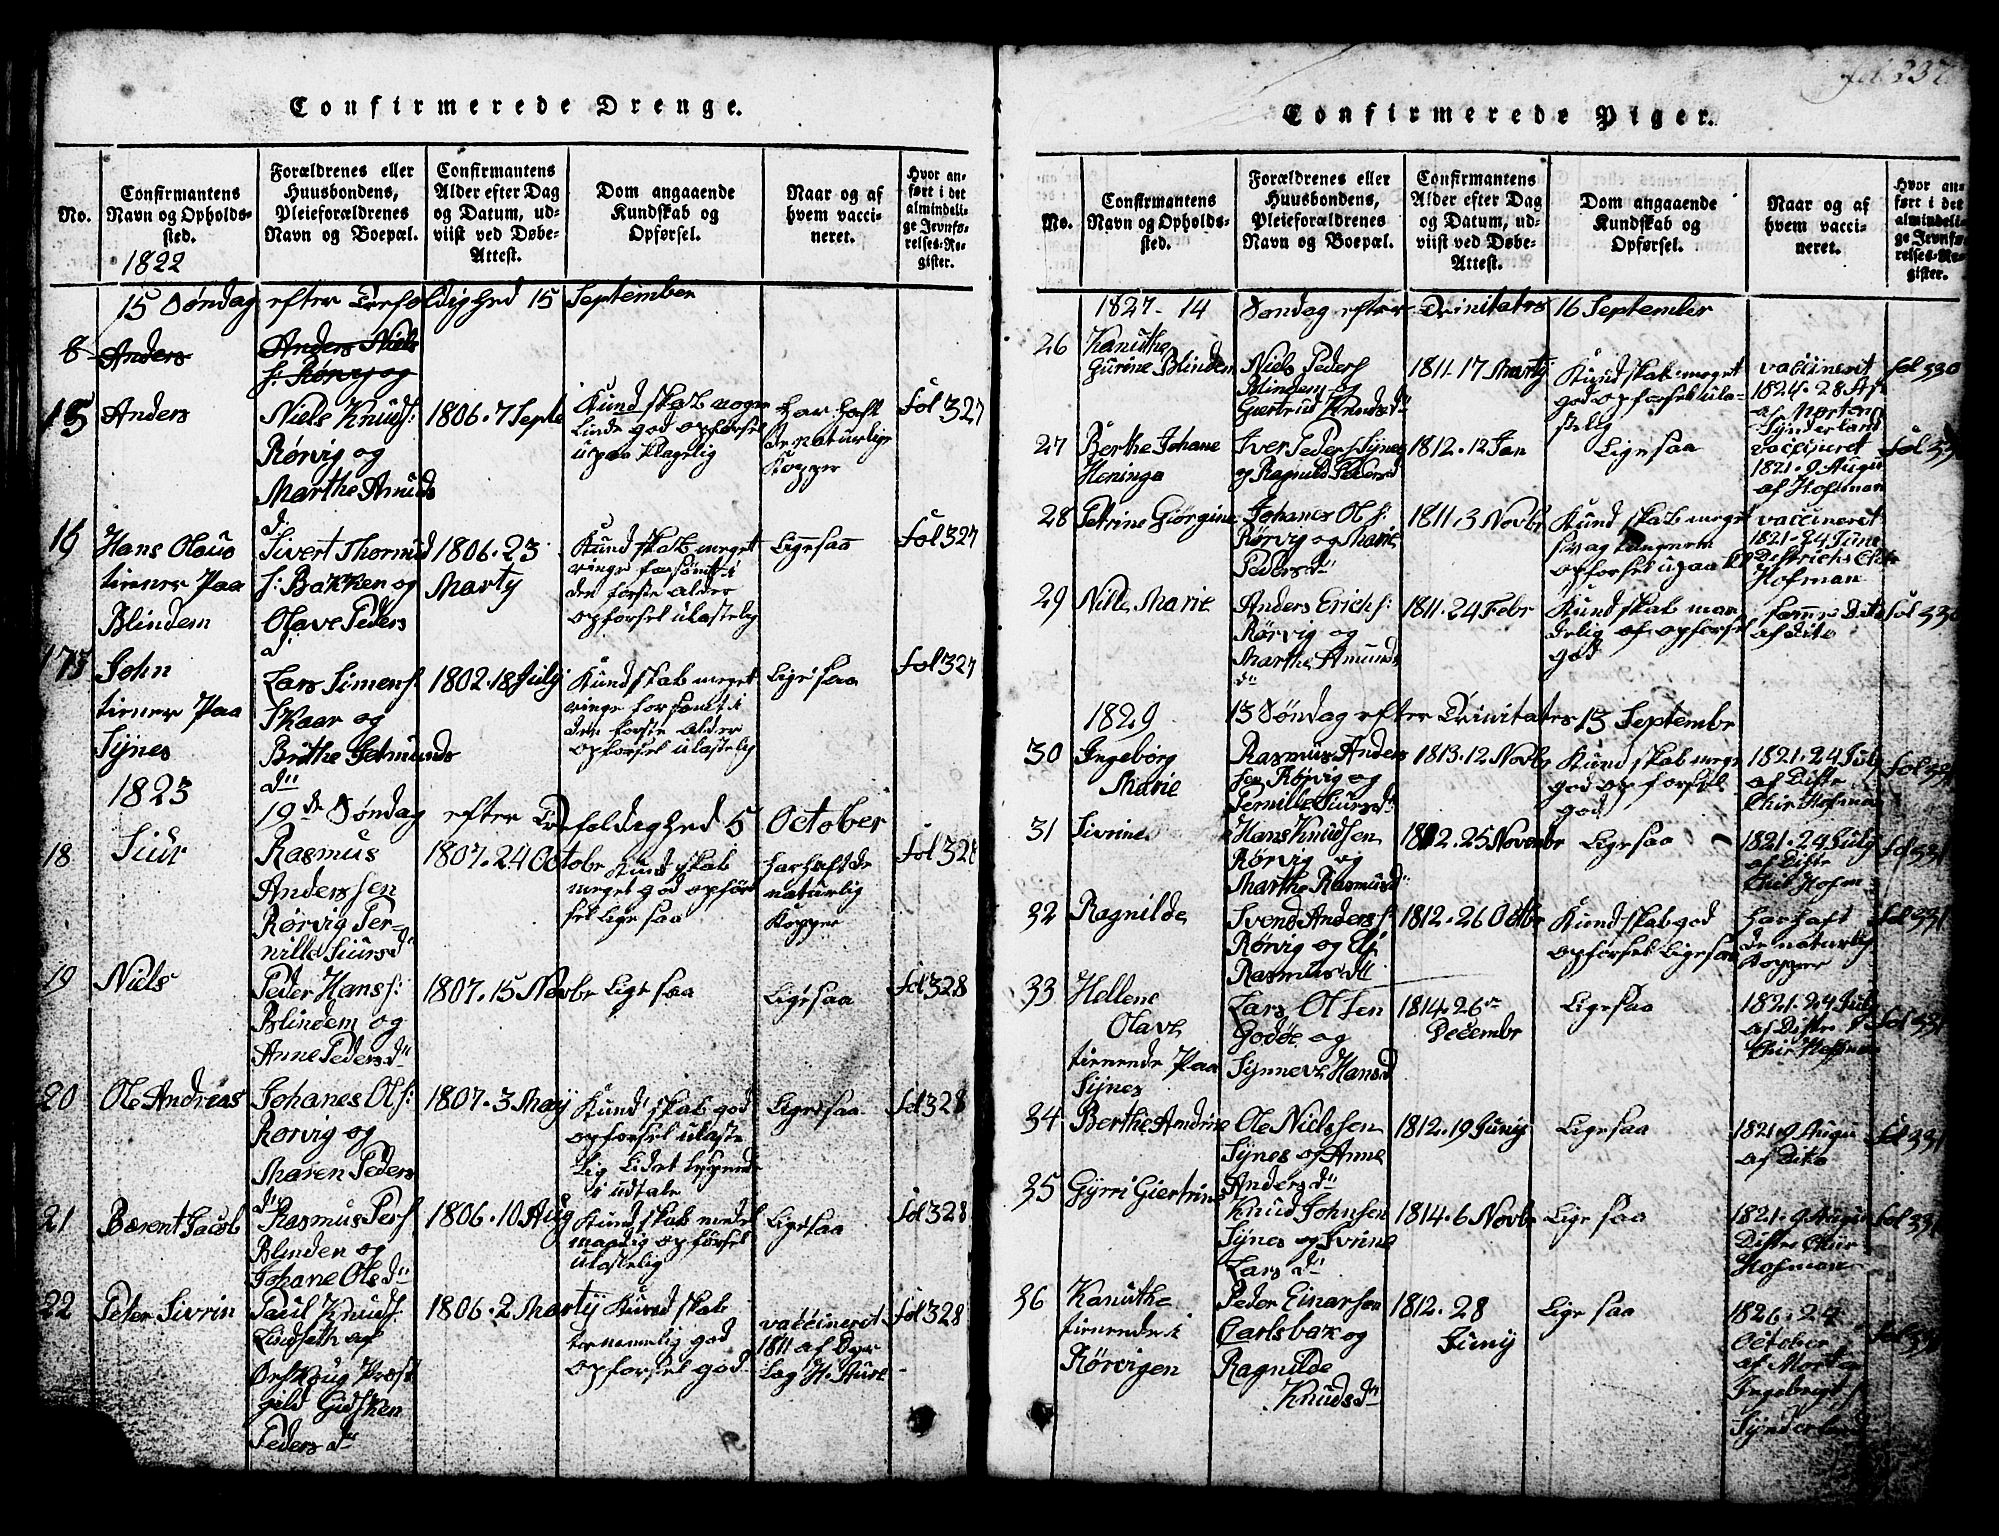 Confirmerede Drenge.
No.
Confirmantens
Navn og Opholds-
sted.
Forældrenes eller
Huusbondens,
Pleieforældrenes
Navn og Boepæl.
Confirmantens
Alder efter Dag
og Datum, ud-
viist ved Døbe-
Attest.
Dom angaaende
Kundskab og
Opførsel.
Naar og af
hvem vacci-
neret.
Hvor an-
ført i det
almindeli-
ge Jevnfø-
relses-Re-
gister.
1822
15 Søndag efter Trefoldighed 15 September
8 Anders
Anders Niels
f: Rørvig og
15 Anders
Niels Knuds:
Rørvig og
Marthe Amuds
d:
1806. 7 Septe
Kundskab noge
Linde god opførsel
upaaklagelig
Har Haft
de naturlige
Kopper
Fol 327
16 Hans Olaus
tiener Paa
Blindem
Sivert Thormod
s: Bakken og
Olave Peders
d:
1806. 23
Marty
Kundskab meget
ringe forsømt i
den første Alder
opførsel ulastelig
Ligesaa
Fol 327
17 John
tiener Paa
Synes
Lars Simens:
Skaar og
Brithe Getmunds
d:
1802. 18 July
Kundskab meget
ringe forsømt i
den første Alder
opførsel ulastelig
Ligesaa
Fol 327
1823
19de Søndag efter Trefoldighed 5 October
18 Siur
Rasmus
Anderssen
Rørvig Per-
nille Siursd:
1807. 24 Octobr
Kundskab
meget god opfør
sel Ligesaa
har haft de
naturlig
Kopper
Fol 328
19 Niels
Peder Hanss:
Blindem og
Anne Pedersd:
1807. 15 Novbr
Ligesaa
Ligesaa
Fol 328
20 Ole Andreas
Johanes Ols:
Rørvig og
Maren Peders
d:
1807. 3 Mary
Kundskab god
opførsel ulaste
lig Lidet
i udtale
Ligesaa
Fol 328
21 Bærent Jacob
Rasmus Pers
Blinden og
Johane Olsd:
1806. 10 Aug
Kundskab medel
maadig opførsel
ulastelig
Ligesaa
Fol 328
22 Peter Sivrin
Paul Knuds:
Lindseth af
Ørskoug Præst
gild Gidsken
Pedersd:
1806. 2 Marty
Kundskab
temmelig god
opførsel god
vaccineret
1811 af
Fol 328
fol 337
Confirmerede Piger.
No.
Confirmantens
Navn og Opholds-
sted.
Forældrenes eller
Huusbondens,
Pleieforældrenes
Navn og Boepæl.
Confirmantens
Alder efter Dag
og Datum, ud-
viist ved Døbe-
Attest.
Dom angaaende
Kundskab og
Opførsel.
Naar og af
hvem vacci-
neret.
Hvor an-
ført i det
almindeli-
ge Jevnfø-
relses-Re-
gister.
1827 - 14 Søndag efter Trinitates 16 September
26 Kanuthe
Gurine Blindem
Niels Peders
Blindem og
Giertrud Knudsd:
1811. 17 Marty
Kundskab meget
god opførsel ula-
stelig
vaccineret
af Morten
Synderland
fol 330
27 Berthe Johane
Heninga
Iver Peders Synes
og Ragnild Pedersd
1812. 12 Jan
Ligesaa
vaccineret
1821. 9 Augu
af Hofman
28 Petrine Giørgine
Johanes Ols:
Rørvig og Marie
Pedersd:
1811. 3 Novbr
Kundskab meget
svag
opførsel
vaccineret
1821. 24 June
Districhs
Hofman
29 Nille Marie
Anders Erichs:
Rørvig og
Marthe Amunds
d:
1811. 24 Febr
Kundskab maa
delig og opførsel
god
samme Dito
af dito
Fol 330
1829 13 Søndag efter Trinitates 13 Septembr
30 Ingeborg
Marie
Rasmus Anders
sen Rørvig og
Pernille Siursd:
1813. 12 Novbr
Kundskab mege
god opførsel
god
1821. 24 July
af Distr
Chir Hofman
fol 331
31 Sivrine
Hans Knudsen
Rørvig og
Marthe Rasmusd:
1812. 25 Novembr
Ligesaa
1821. 24 July
af Distr
Chir Hofm
fol 331
32 Ragnilde
Svend Anderss:
Rørvig og Els
Rasmusd:
1812. 26 Octbr
Kundskab god
opførsel Ligesaa
har haft
de naturlig
Kopper
fol 331
33 Hellene
Olave
tienende Paa
Synes
Lars Olsen
Godøe og
Synneve Hansd
1814. 26de
Decembr
Ligesaa
1821. 24 July
af Distr
Chir Hofman
fol 331
34 Berthe Andrine
Ole Nielssen
Synes og Anne
Andersd:
1812. 19 Juny
Ligesaa
1821. 9 Augu
af Dito
fol 331
35 Gyrri Giertrine
Knud Johnsen
Synes og Ivrine
Larsd:
1814. 6 Novbr
Ligesaa
1821. 9 Augu
Distr Chir
Hofman
fol 331
36 Kanuthe
tienende i
Rørvigen
Peder Einarsen
Carlsbak og
Ragnilde
Knudsd:
1812. 28
Juny
Ligesaa
1826. 24
October
af Morten
Ingebrigts
Synderland
fol 331